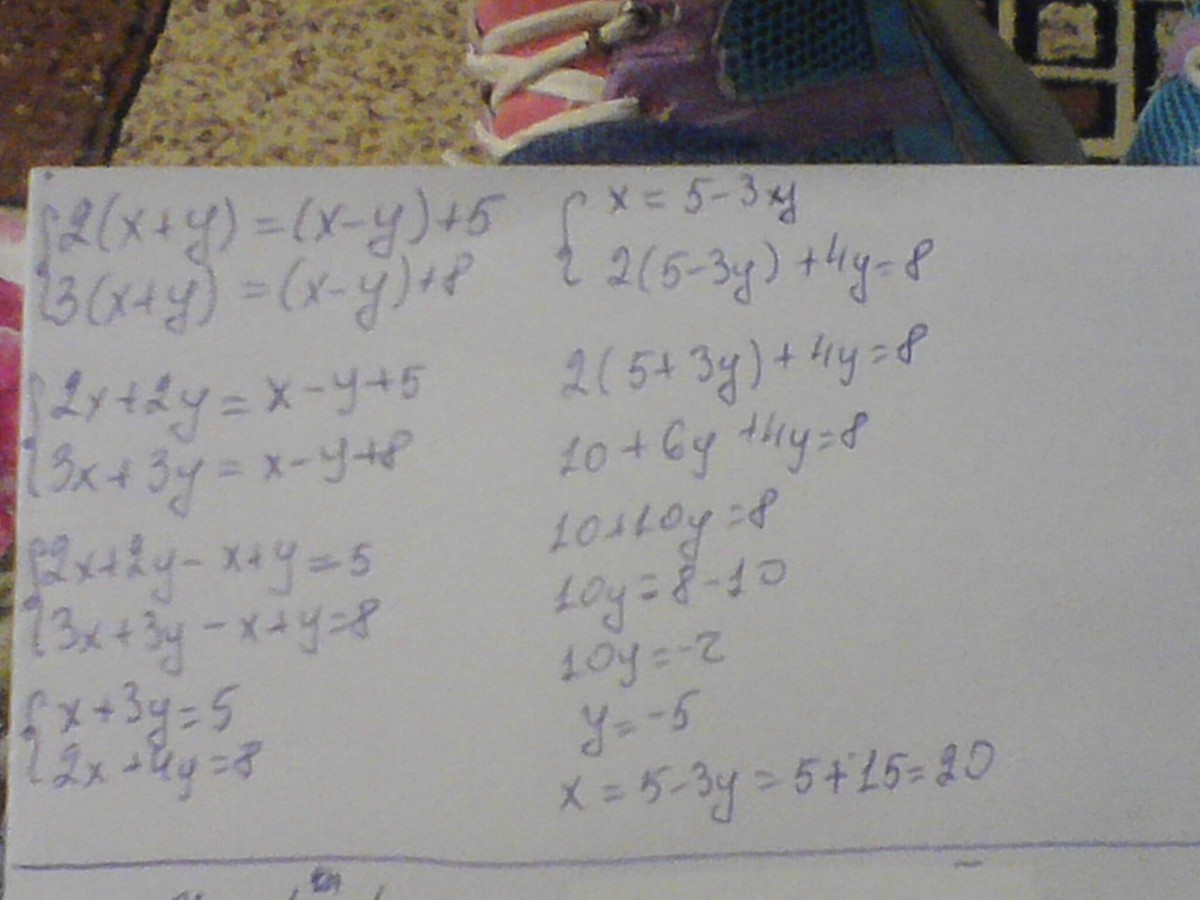 2(x+y) = (x-y)+5
3(x+y) = (x-y)+8
2x+2y = x-y+5
3x+3y = x-y+8
2x+2y- x+y = 5
3x+3y - x+y=8
x+3y = 5
2x+4y=8
x = 5-3y
2(5-3y) +4y=8
2(5+3y)+4y=8
10+6y +4y=8
10+10y=8
10y=8-10
10y=-2
y=-5
x = 5-3y = 5+15=20